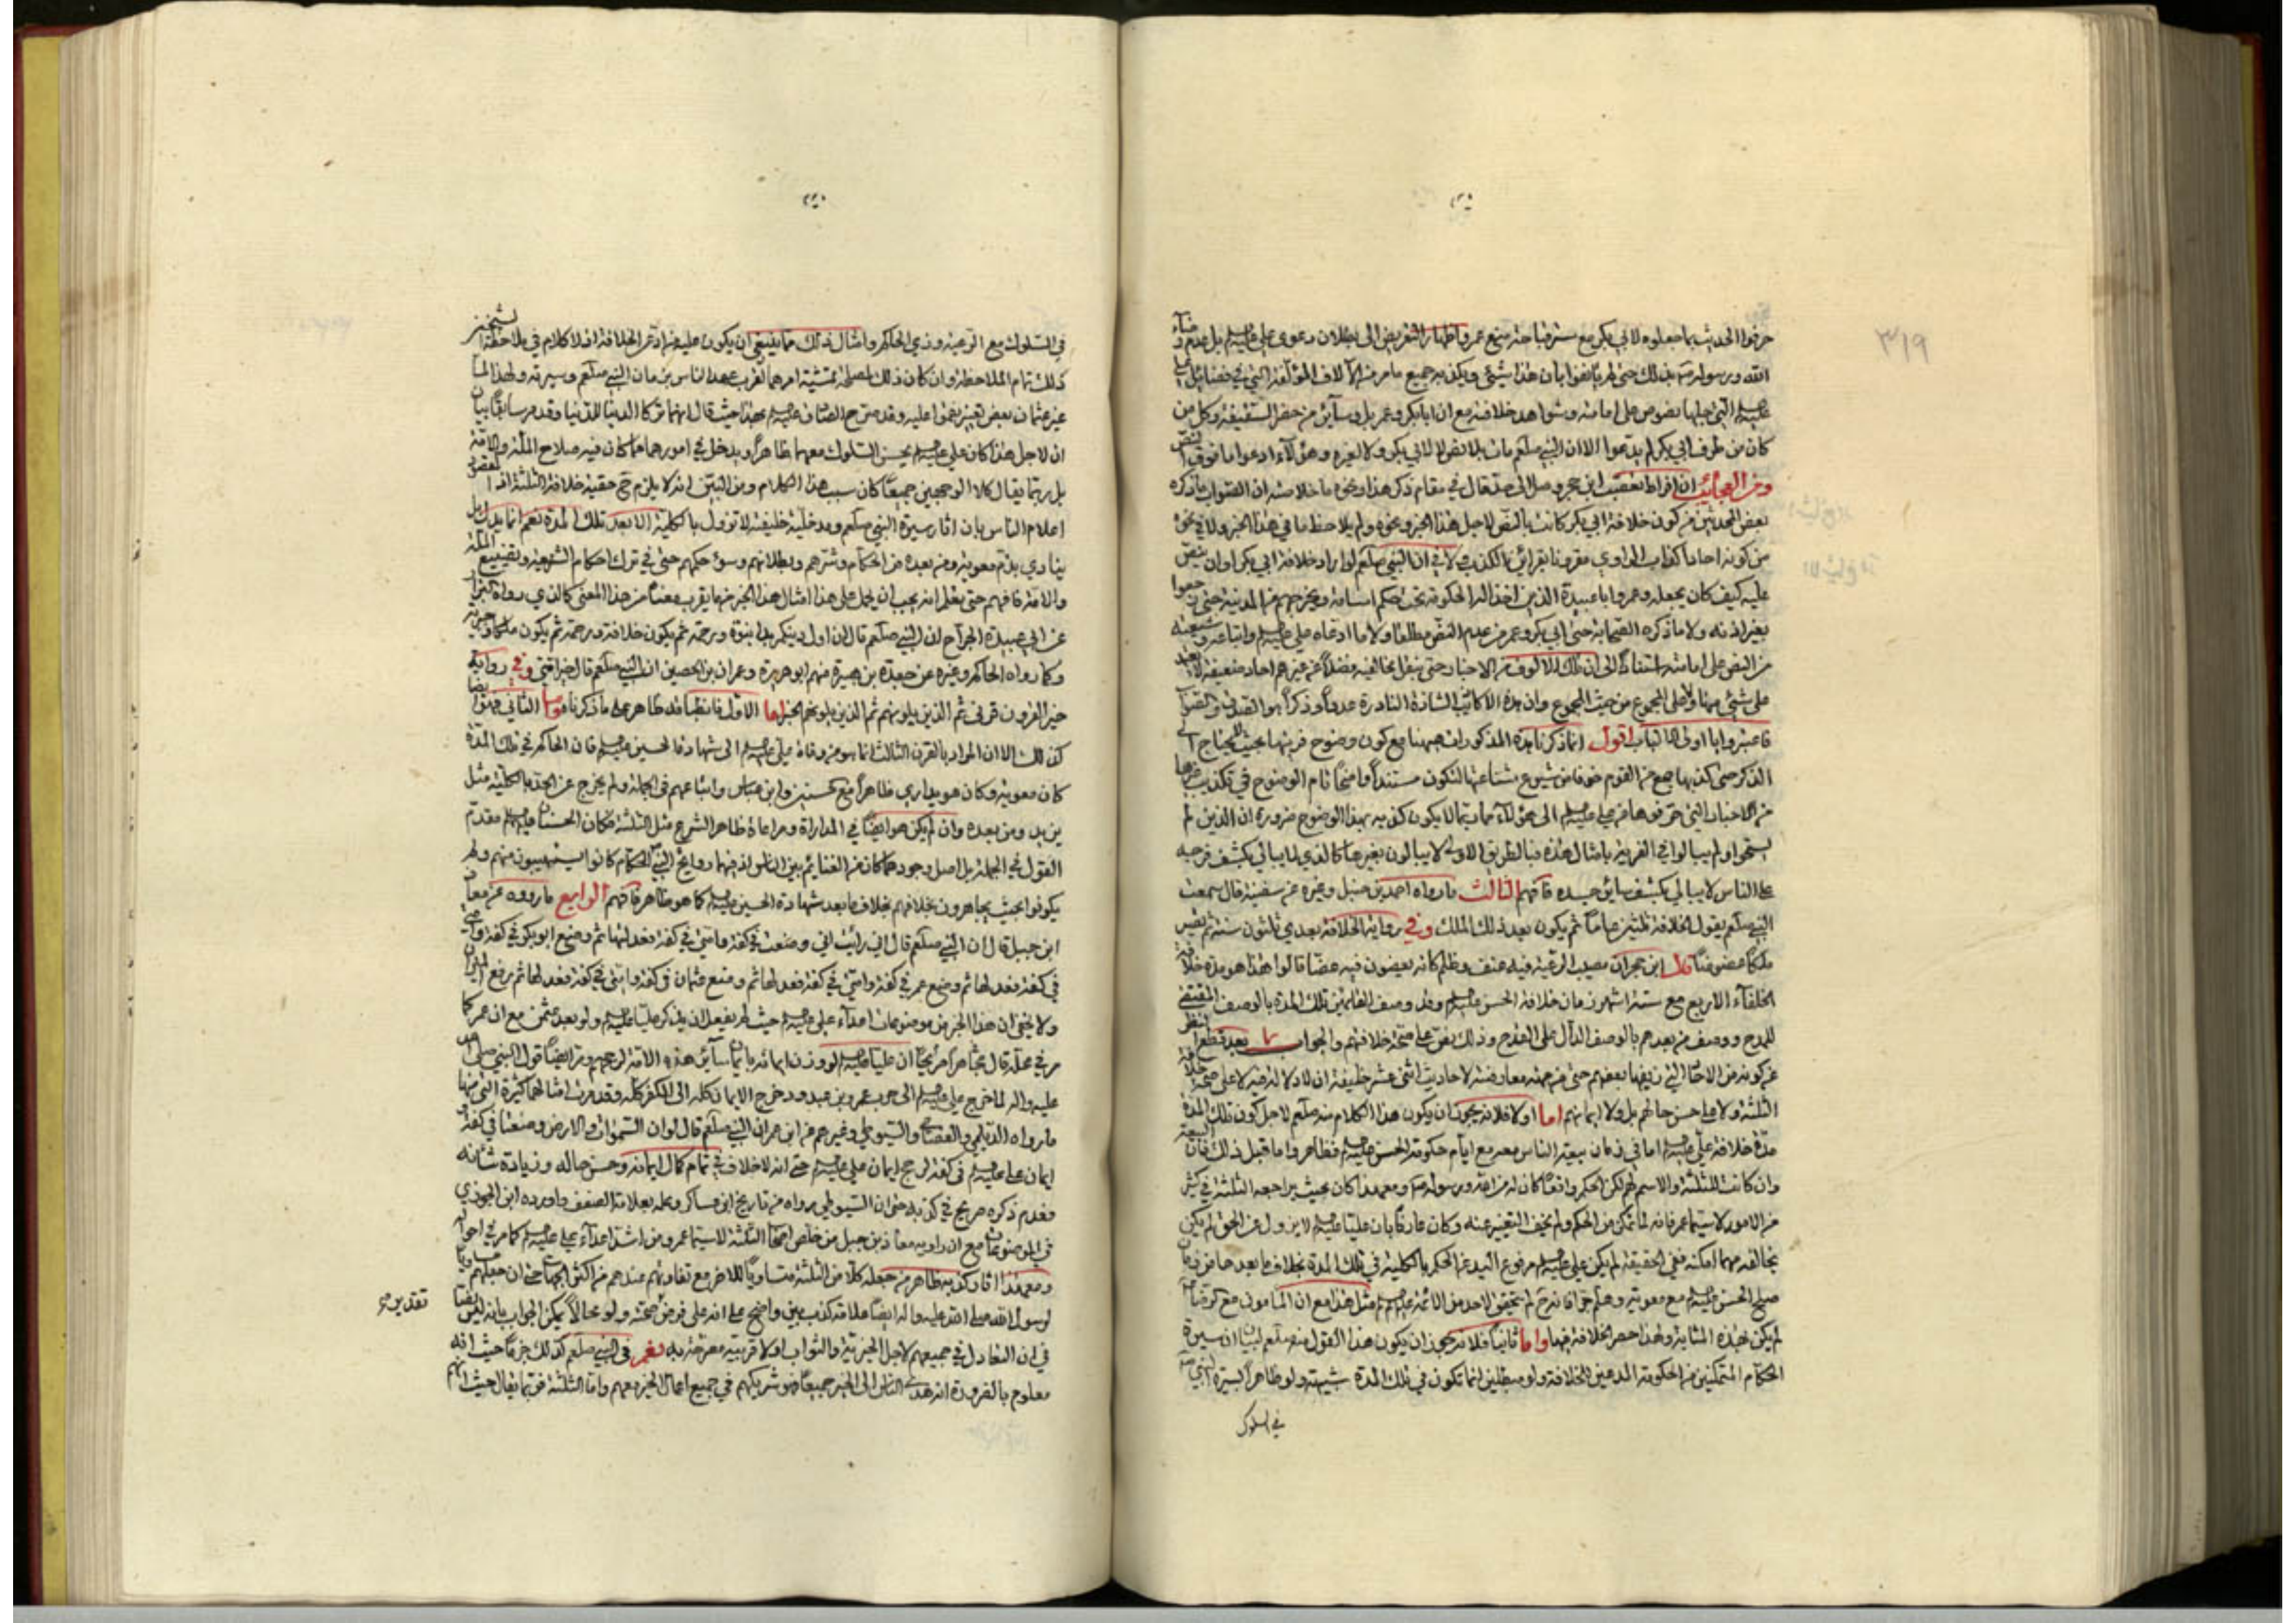 ٣١٩
حرفوا الحديث بما جعلوه لابي بكر مع سترقباحة منع عمر واظهار التعريض الى بطلان دعوى علي عليه السلم بل عدم رضاء
الله ورسوله بذلك حتى لم يأنفوا بان هذا شئ ويكذبه جميع ما مر من الآلاف المؤلفة التي في فضايل علي
عليه السلم التي جلها نصوص على امامته وشواهد خلافته مع ان ابابكر وعمر بل وسآير من حضر السقيفة وكل من
كان من طرف ابي بكر لم يدعوا الا ان النبي صلعم مات بلا نص لا لابي بكر ولا لغيره وهؤلآء ادعوا ما فوق النص
ومن العجايب ان افراط تعصب ابن حجر وصل الى حد قال في مقام ذكر هذا ونحوه ما خلاصته ان الصواب ما ذكره
بعض المحدثين من كون خلافة ابي بكر كانت بالنص لاجل هذا الخبر ونحوه ولم يلاحظ ما في هذا الخبر ولا في نحوه
من كونه احادا كذاب الراوي مقرونا بقرائن الكذب ولا في ان النبي صلعم لو اراد خلافة ابي بكر او ان ينص
عليه كيف كان يجعله وعمر وابا عبيدة الذين اخذ الحكومة تحت حكم اسامة ويخرجهم من المدينة حتى رجعوا
بغير اذنه ولا ما ذكره الصحابة حتى ابي بكر وعمر من عدم النص مطلقا ولا ما ادعاه علي عليه السلم واتباعه وشيعته
من النص على امامته استنادا الى ان تلك الالوف من الاخبار حتى بنقل مخالفيه فضلا عن غيرهم احاد ضعيفة لا
على شئ منها ولا على المجموع من حيث المجموع وان هذه الاكاذيب الشاذة النادرة عددا وذكرا هو الصدق والصواب
فاعتبروا يا اولي الالباب اقول انما ذكرنا هذه المذكورات ههنا مع كون وضوح فريتها بحيث لا يحتاج الى
الذكر حتى كذبها جمع من القوم خوفا من شيوع شناعتها لتكون مستندا واضحا تام الوضوح في تكذيب غيرها
من الاخبار التي حرفوها من علي عليه السلم الى هؤلآء مما ربما لا يكون كذبه بهذا الوضوح ضرورة ان الذين لم
يستحوا ولم يبالوا في الفرية بامثال هذه فبالطريق الاولى لا يبالون بغيرها كالذي لا يبالي بكشف فرجه
على الناس لا يبالي بكشف سائر جسده فافهم الثالث ما رواه احمد بن حنبل وغيره عن سفينة قال سمعت
النبي صلعم يقول الخلافة ثلثين عاما ثم يكون بعد ذلك الملك وفي رواية الخلافة بعدي ثلثون سنة ثم تصير
ملكا عضوضا قال ابن حجر ان مصيب الرعية فيه عنف وظلم كانه يعضون فيه عضا قالوا هذا هو مدة خلافة
الخلفآء الاربع مع ستة اشهر زمان خلافة الحسن عليه السلم وقد وصف القائمين تلك المدة بالوصف المقتضي
للمدح ووصف من بعدهم بالوصف الدال على القدح وذلك نص على صحة خلافتهم والجواب بعد قطع النظر
عن كونه من الاحاد التي زيفها بعضهم حتى من جهة معارضته لاحاديث اثنى عشر خليفة ان لا دلالة فيه لا على صحة خلافة
الثلثة ولا على حسن حالهم بل ولا ايمانهم اما اولا فلانه يجوز ان يكون هذا الكلام منه صلعم لاجل كون تلك المدة
مدة خلافة علي عليه السلم اما في زمان بيعة الناس معه مع ايام حكومة الحسن عليه السلم فظاهر واما قبل ذلك فان البيعة
وان كانت للثلثة والاسم لهم لكن الحكم واقعا كان له من الله ورسوله ومعهذا كان بحيث يراجعه الثلثة في كثير
من الامور لاسيما عمر فانه لما تمكن من الحكم ولم يخف التغيير عنه وكان عارفا بان عليا عليه السلم لا يزول عن الحق لم يكن
يخالفه مهما امكنه ففي الحقيقة لم يكن علي عليه السلم مرفوع اليد عن الحكم بالكلية في تلك المدة بخلاف ما بعدها من زمان
صلح الحسن عليه السلم مع معوية وهلم جرا فانه لم يتحقق لاحد من الائمة عليهم السلم مثل هذا مع ان المامون مع
لم يكن بهذه المثابة ولهذا حصر الخلافة فيها واما ثانيا فلانه يجوز ان يكون هذا القول منه صلعم لبيان ان سيرة
الحكام المتمكنين من الحكومة المدعين للخلافة ولو مبطلين انما تكون في تلك المدة شبيهة ولو ظاهرا بسيرة النبي
في السلوك
في السلوك مع الرعية وزي الحاكم وامثال ذلك مما ينبغي ان يكون عليه من ادعى الخلافة اذ لا كلام في ملاحظة الشيخين
ذلك تمام الملاحظة وان كان ذلك لمصلحة تمشية امرهما لقرب عهد الناس بزمان النبي صلعم وسيرته ولهذا لما
غير عثمان بعض تغيير نقموا عليه وقد صرح الصادق عليه السلم بهذا حيث قال انهما تركا الدنيا للدنيا وقد مر سابقا بيان
ان لاجل هذا كان علي عليه السلم يحسن السلوك معهما ظاهرا ويدخل في امورهما مما كان فيه صلاح الملة والامة
بل ربما يقال كلا الوجهين جميعا كان سبب هذا الكلام ومن البين انه لا يلزم ح حقية خلافة الثلثة اذ المقصود
اعلام الناس بان اثار سيرة النبي صلعم ومدخلية خليفته لا تزول بالكلية الا بعد تلك المدة نعم انما يدل بل
ينادي بذم معوية ومن بعده من الحكام وشرهم وبطلانهم وسوء حكمهم حتى في ترك احكام الشريعة وتضييع الملة
والامة فافهم حتى تعلم انه يجب ان يحمل على هذا امثال هذا الخبر مما يقرب معناه من هذا المعنى كالذي رواه البزار
عن ابي عبيدة الجراح ان النبي صلعم قال ان اول دينكم بدا نبوة ورحمة ثم يكون خلافة ورحمة ثم يكون ملكا وجبرية
وكما رواه الحاكم وغيره عن جعدة بن هبيرة منهم ابو هريرة وعمران بن الحصين ان النبي صلعم قال خير امتي وفي رواية
خير القرون قرني ثم الذين يلونهم ثم الذين يلونهم الخبر اما الاول فانطباقه ظاهر على ما ذكرناه واما الثاني فهو ايضا
كذلك الا ان المراد بالقرن الثالث انما هو من وفاة علي عليه السلم الى شهادة الحسين عليه السلم فان الحاكم في تلك المدة
كان معوية وكان هو يداري ظاهرا مع الحسنين وابن عباس واتباعهم في الجملة ولم يخرج عن الحد بالكلية مثل
يزيد ومن بعده وان لم يكن هو ايضا في المداراة ومراعاة ظاهر الشرع مثل الثلثة فكان الحسنان عليهما السلم مقدم
القول في الجملة بل اصل وجودهما كان من الغنايم بين الناس اذ فيهما روايح النبي الحكام كانوا يستهيبون منهم ولم
يكونوا بحيث يجاهرون بخلافهم بخلاف ما بعد شهادة الحسين عليه السلم كما هو ظاهر فافهم الرابع ما رووه عن معاذ
ابن جبل قال ان النبي صلعم قال اني رأيت اني وضعت في كفة وامتي في كفة فعدلتها ثم وضع ابو بكر في كفة وامتي
في كفة فعدلها ثم وضع عمر في كفة وامتي في كفة فعدلها ثم وضع عثمان في كفة وامتي في كفة فعدلها ثم رفع الميزان
ولا يخفى ان هذا الخبر من موضوعات اعدآء علي عليه السلم حيث لم يفعل ان يذكر عليا عليه السلم ولو بعد عثمن مع ان عمر كما
مر في محله قال مجاهرا مرارا ان عليا عليه السلم لو وزن ايمانه بايمان سآير هذه الامة لرجحهم ومر ايضا قول النبي صلى الله
عليه واله لما خرج علي عليه السلم الى حرب عمرو بن عبدود خرج الايمان كله الى الكفر كله وقد مرت امثالهما كثيرة التي منها
ما رواه الديلمي والسيوطي وغيرهم عن ابن عمر ان النبي صلعم قال لو ان السموات والارض وضعتا في كفة و
ايمان علي عليه السلم في كفة لرجح ايمان علي عليه السلم حتى انه لا خلاف في تمام كمال ايمانه وحسن حاله وزيادة شانه
فعدم ذكره صريح في كذبه حتى ان السيوطي رواه من تاريخ ابن عساكر وعلم بعلامة الضعف واورده ابن الجوزي
في الموضوعات مع ان راويه معاذ بن جبل من خلص اصحاب الثلثة لاسيما عمر ومن اشد اعدآء علي عليه السلم كما مر في احواله
ومعهذا اثار كذبه ظاهر من جعله كلا من الثلثة متساويا للاخر مع تفاوتهم عندهم من اكثر الجهات حتى ان جعلهم مساويا
لرسول الله صلى الله عليه واله ايضا علامة كذب بين واضح على انه على فرض صحته ولو محالا يمكن الجواب بانه ليس نصا
تقدير صح
في ان التعادل في جميعهم لاجل الخيرية والثواب اذ لا قرينة مصرحة به نعم في النبي صلعم كذلك جزما حيث انه
معلوم بالضرورة انه هدى الناس الى الخير جميعا فهو شريكهم في جميع اعمال الخير معهم واما الثلثة فربما يقال حيث انهم